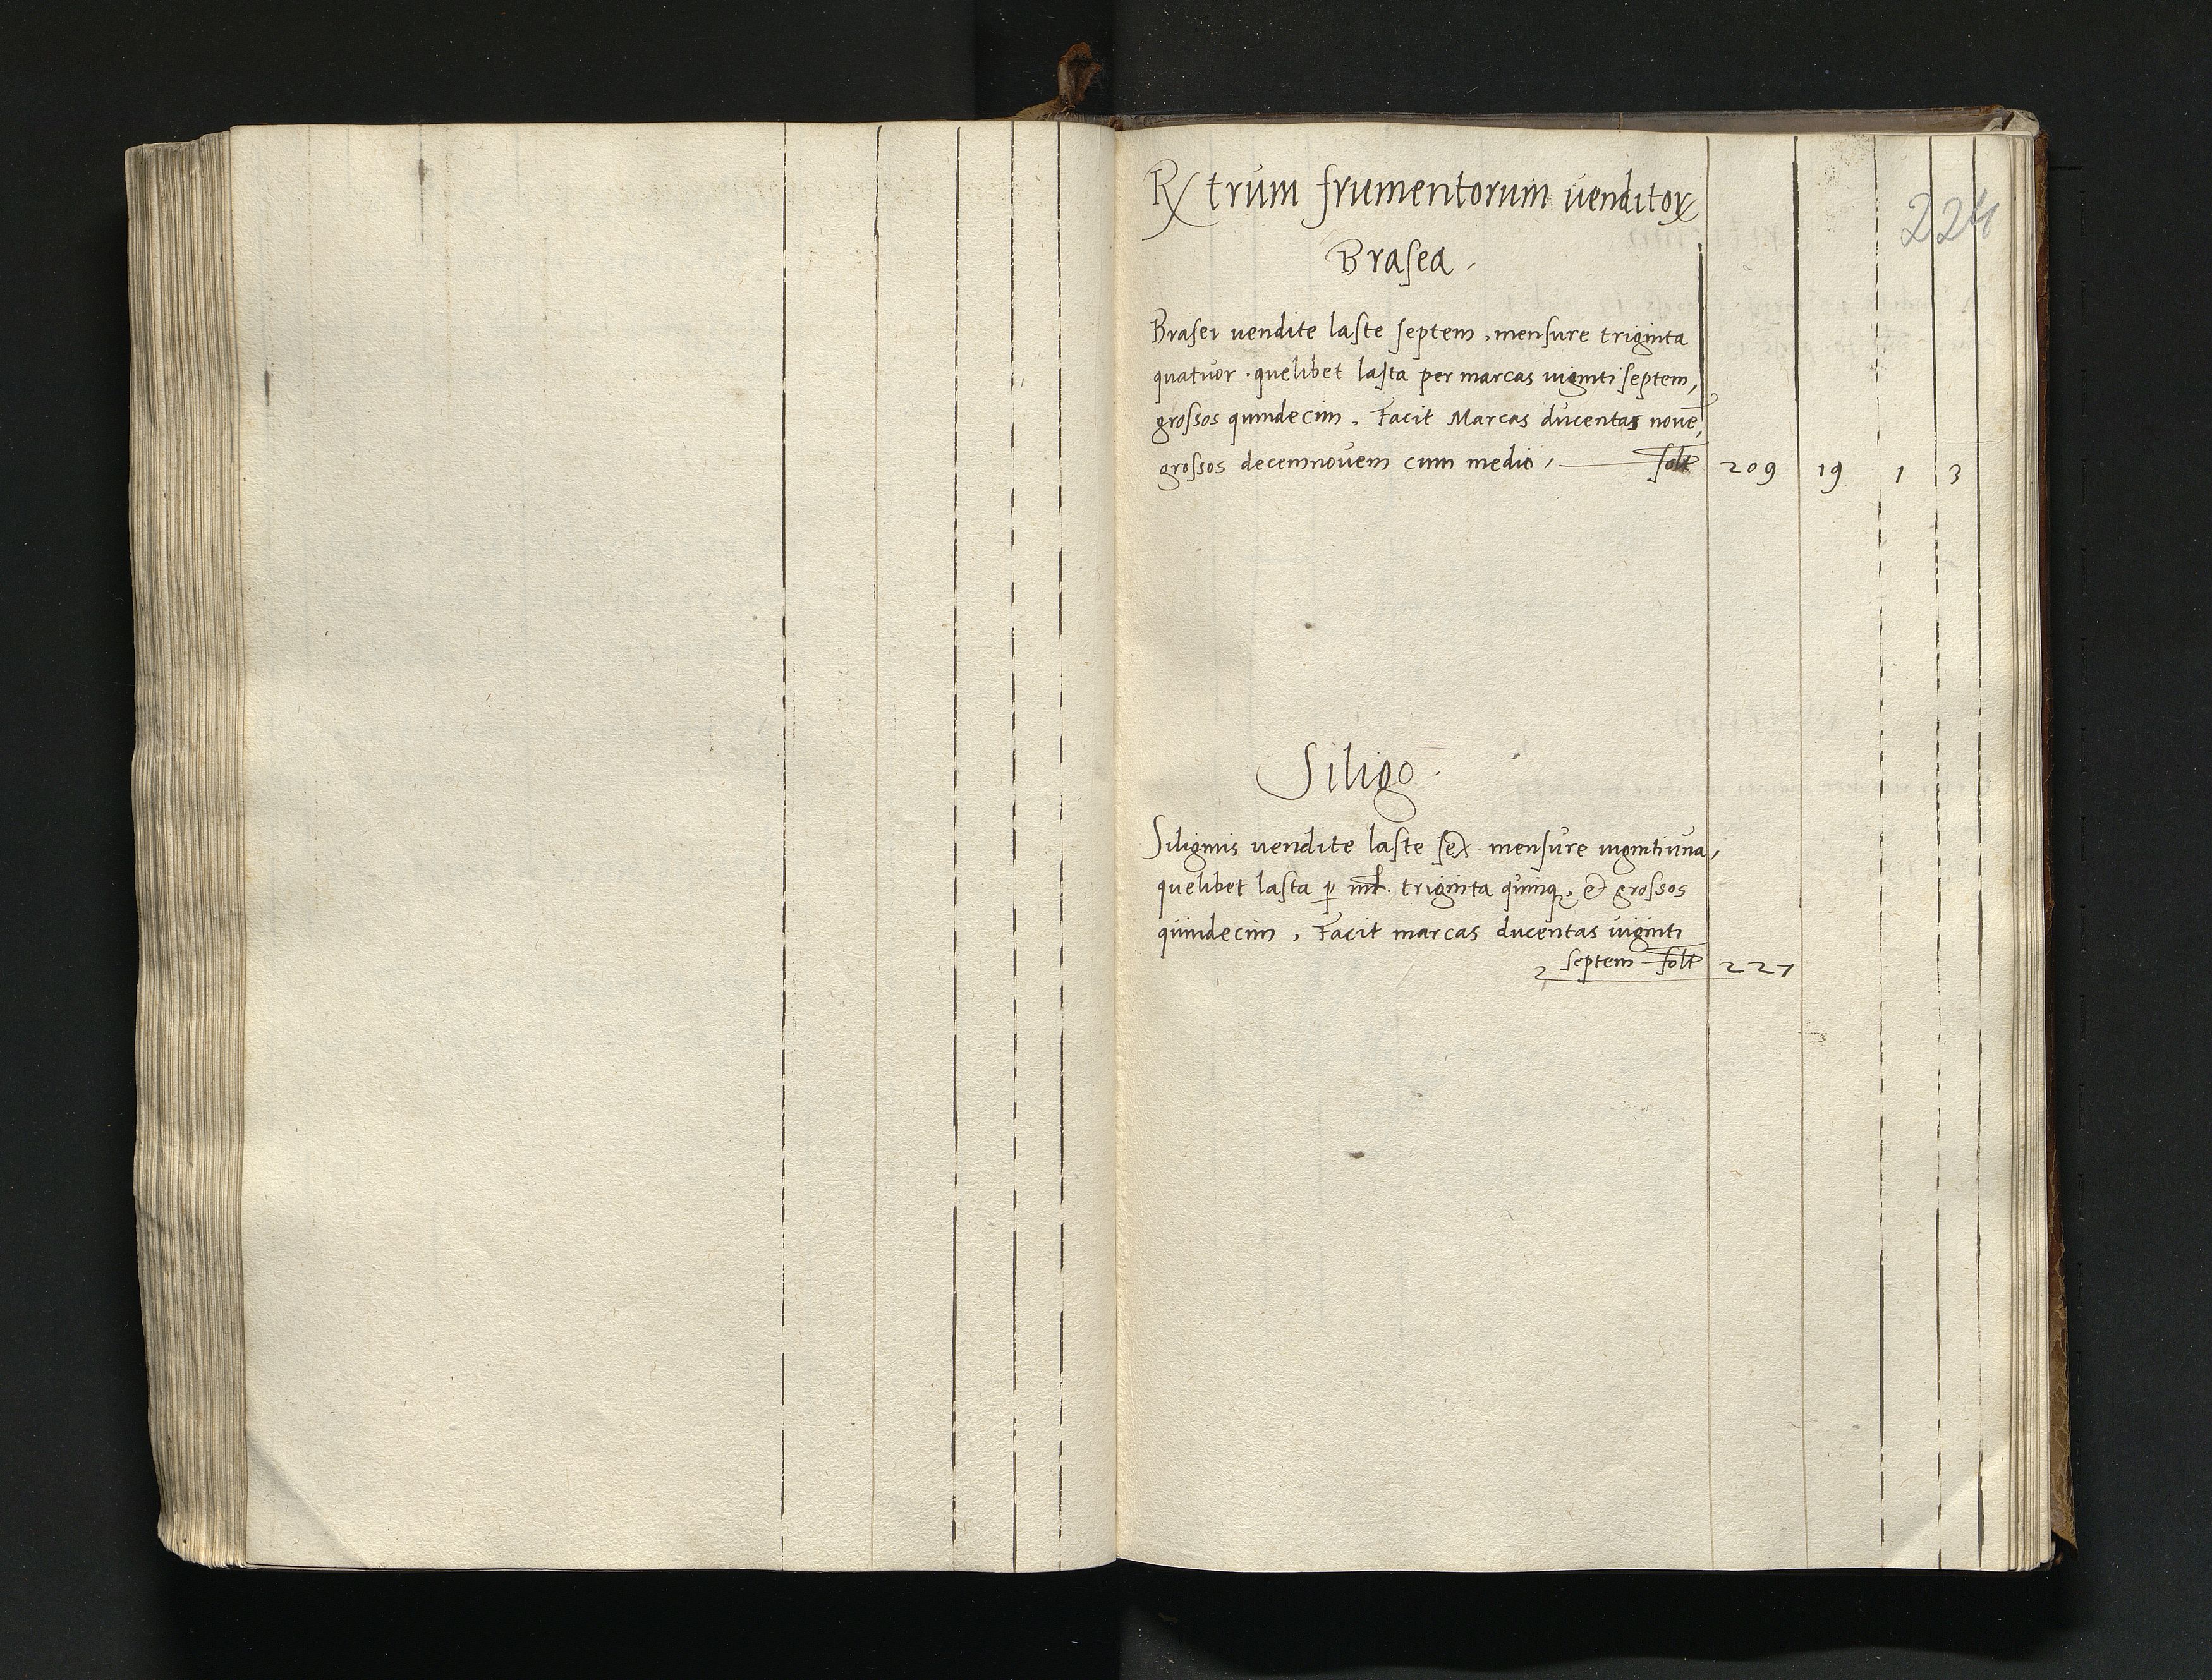 Rx trum frumentorum venditorꝝ
224
Brasea.
Brasei vendite laste septem, mensure triginta
quatuor. quelibet lasta per marcas viginti septem,
grossos quindecim. Facit Marcas ducentas novē,
grossos decemnovem cum medio, solt 209 19 1 3
Siligo.
Siliginis vendite laste sex. mensure vigintiuna,
quelibet lasta ꝑ mr. triginta quinqꝫ, et grossos
quindecim, Facit marcas ducentas viginti
septem solt 227